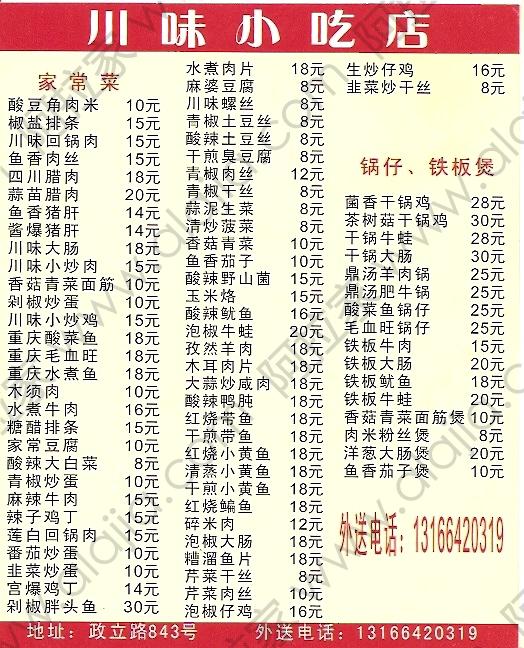 川味小吃店
家常菜
酸豆角肉米 10元
椒盐排条 15元
川味回锅肉 15元
鱼香肉丝 15元
四川腊肉 18元
蒜苗腊肉 20元
鱼香猪肝 14元
酱爆猪肝 14元
川味大肠 18元
川味小炒肉 15元
香菇青菜面筋 10元
剁椒炒蛋 10元
川味小炒鸡 15元
重庆酸菜鱼 18元
重庆毛血旺 18元
重庆水煮鱼 18元
木须肉 10元
水煮牛肉 16元
糖醋排条 15元
家常豆腐 10元
酸辣大白菜 8元
青椒炒蛋 10元
麻辣牛肉 15元
辣子鸡丁 15元
莲白回锅肉 15元
番茄炒蛋 10元
韭菜炒蛋 10元
宫爆鸡丁 14元
剁椒胖头鱼 30元
水煮肉片 18元
麻婆豆腐 8元
川味螺丝 8元
青椒土豆丝 8元
酸辣土豆丝 8元
干煎臭豆腐 8元
青椒肉丝 12元
青椒干丝 8元
蒜泥生菜 8元
清炒菠菜 8元
香菇青菜 10元
鱼香茄子 10元
酸辣野山菌 15元
玉米烙 15元
酸辣鱿鱼 16元
泡椒牛蛙 20元
孜然羊肉 18元
木耳肉片 18元
大蒜炒咸肉 18元
酸辣鸭肫 18元
红烧带鱼 18元
干煎带鱼 18元
红烧小黄鱼 18元
清蒸小黄鱼 18元
干煎小黄鱼 18元
红烧鳊鱼 18元
碎米肉 12元
泡椒大肠 18元
糟溜鱼片 18元
芹菜干丝 8元
芹菜肉丝 10元
泡椒仔鸡 16元
生炒仔鸡 16元
韭菜炒干丝 8元
锅仔、铁板煲
菌香干锅鸡 28元
茶树菇干锅鸡 30元
干锅牛蛙 28元
干锅大肠 30元
鼎汤羊肉锅 25元
鼎汤肥牛锅 25元
酸菜鱼锅仔 25元
毛血旺锅仔 25元
铁板牛肉 15元
铁板大肠 20元
铁板鱿鱼 18元
铁板牛蛙 20元
香菇青菜面筋煲 10元
肉米粉丝煲 8元
洋葱大肠煲 20元
鱼香茄子煲 10元
外送电话：13166420319
地址：政立路843号 外送电话：13166420319